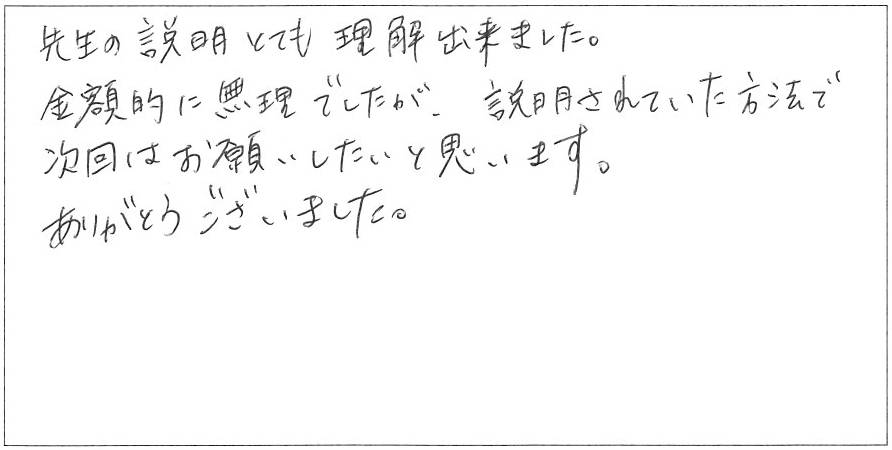 先生の説明とても理解出来ました。
金額的に無理でしたが、説明されていた方法で
次回はお願いしたいと思います。
ありがとうございました。